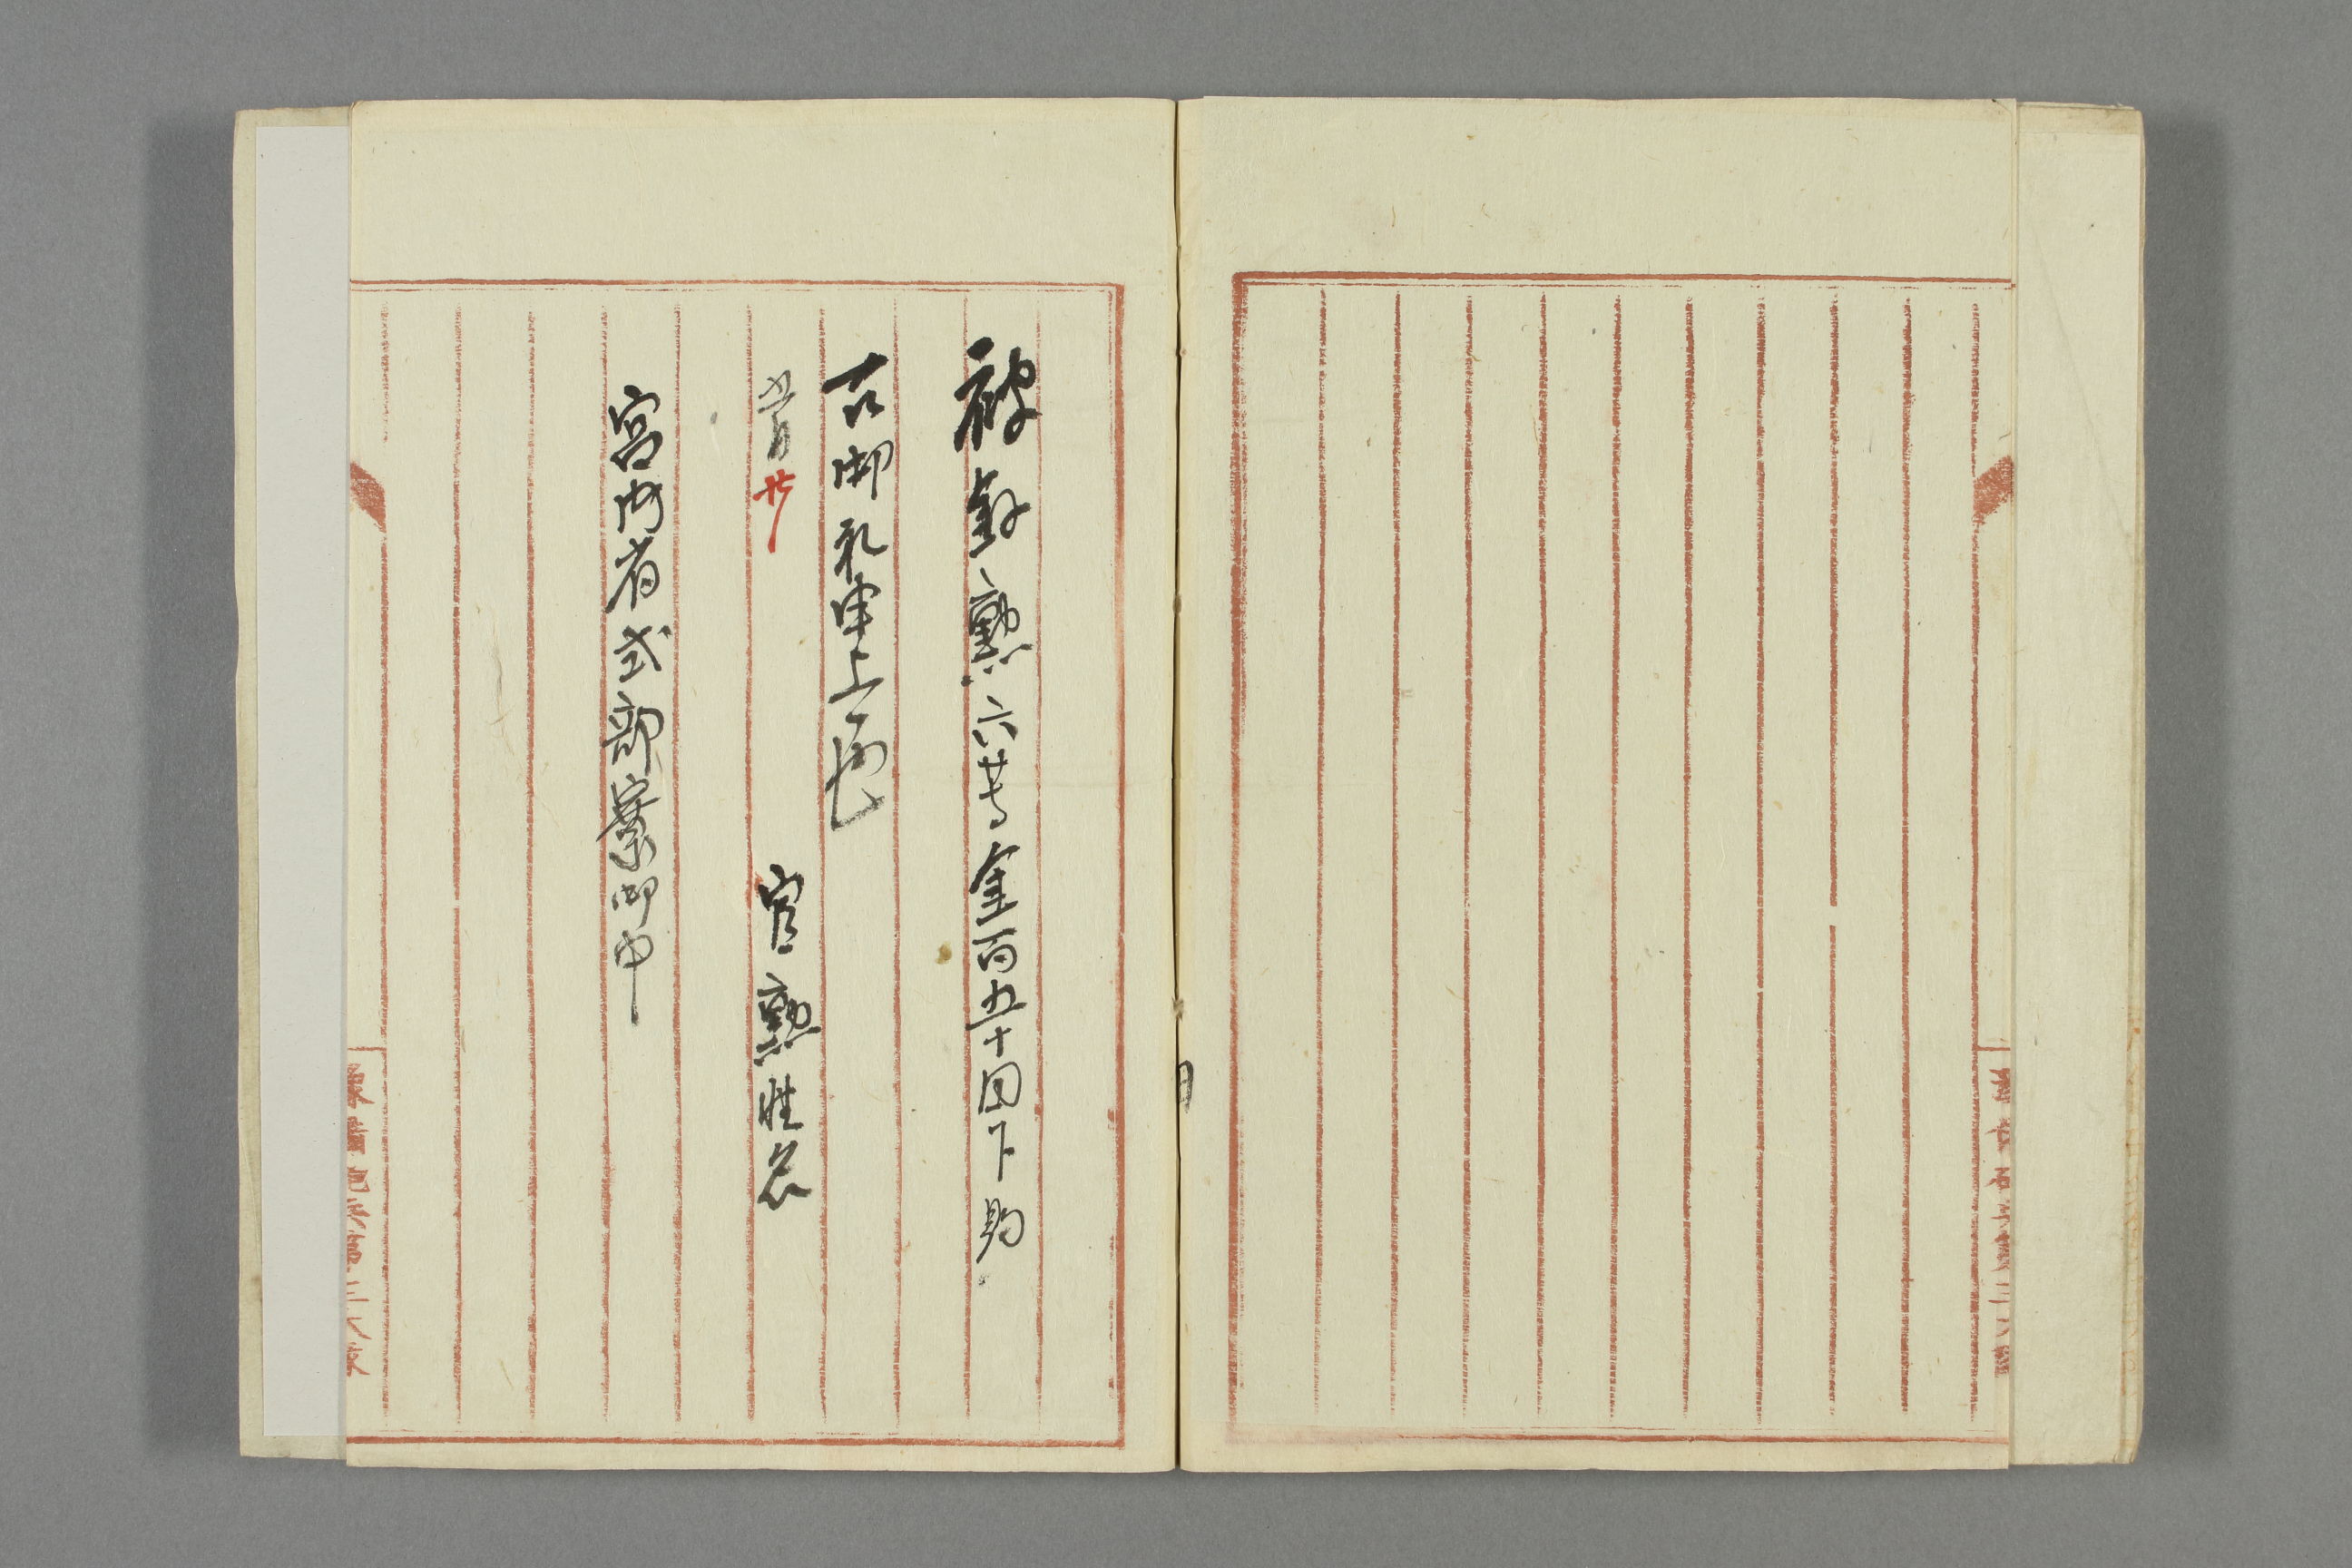 被叙勲六等金百五十円下賜
右御礼申上候也
官勲姓名
宮内省式部寮御中